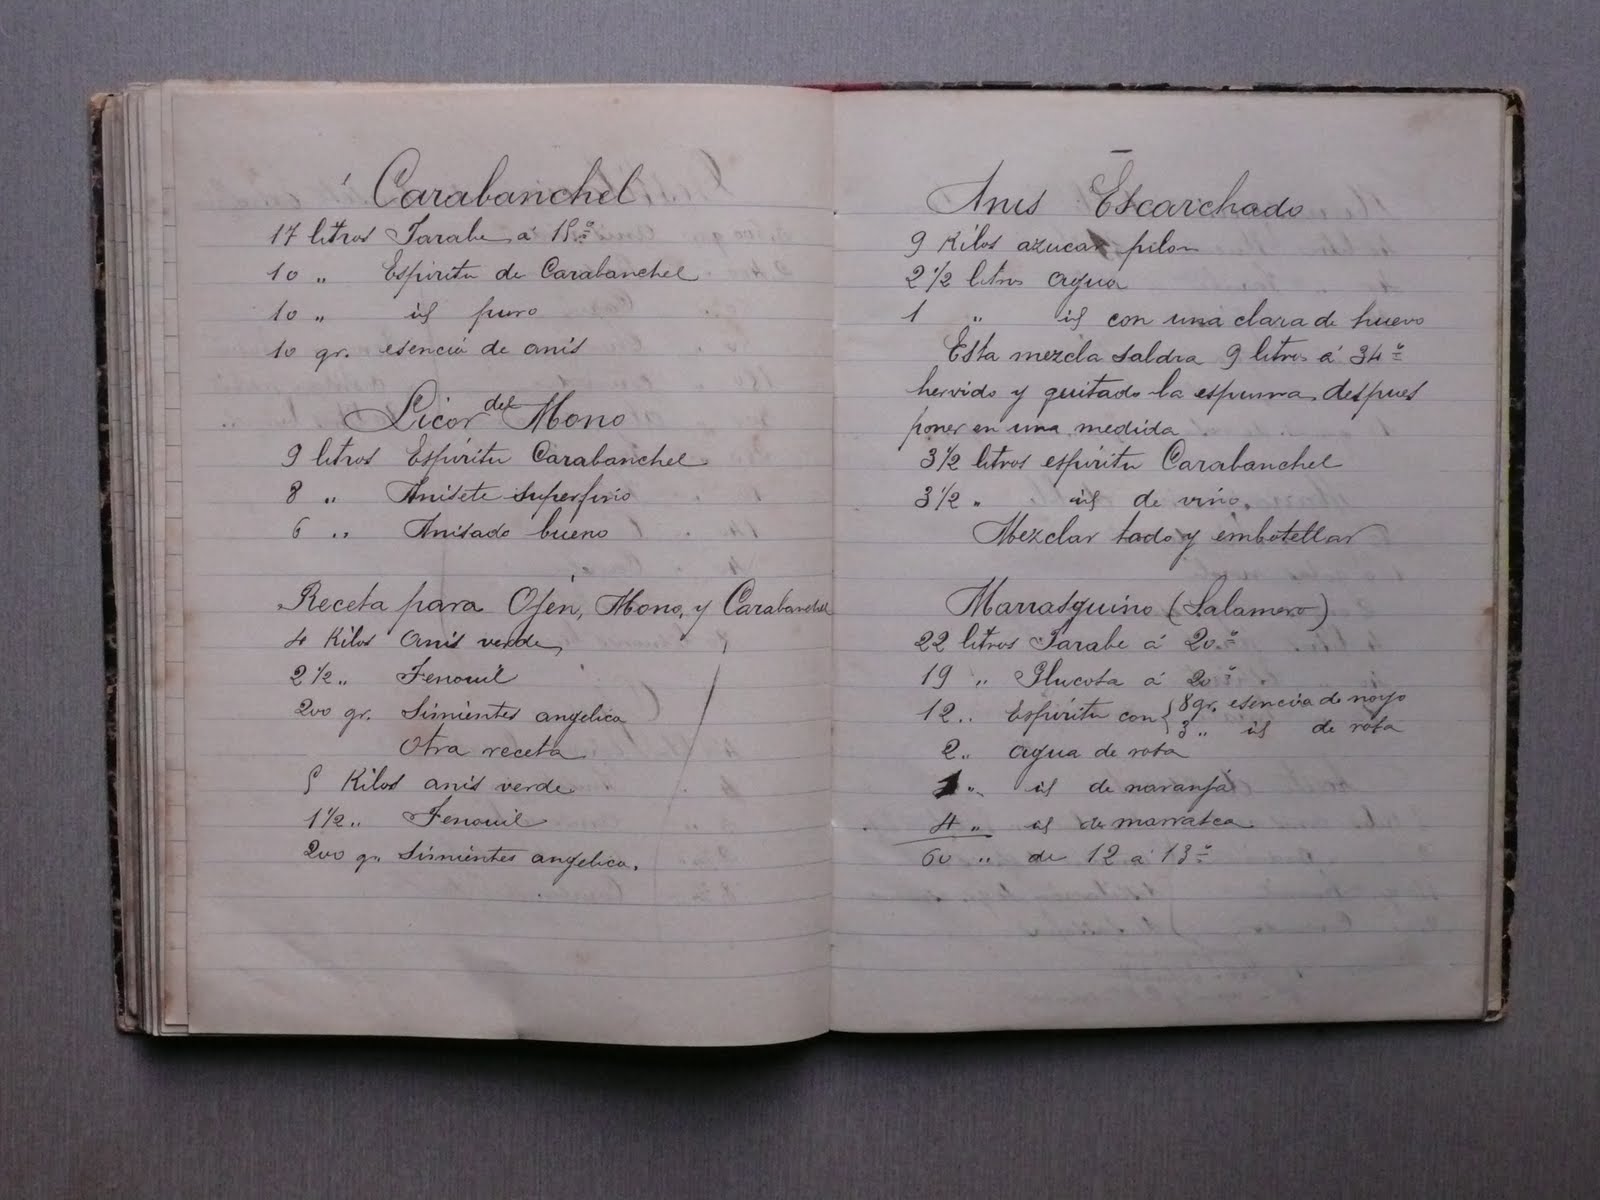 Carabanchel
17 litros Jarabe á 15º
10 " Espiritu de Carabanchel
10 " id puro
10 gr. esencia de anis
Licor del Mono
9 litros Espiritu Carabanchel
8 " Anisete superfino
6 " Anisado bueno
Receta para Ojén, Mono, y Carabanchel
4 Kilos anis verde
2 1/2 " Fenouil
200 gr. Simientes angelica
Otra receta
5 Kilos anis verde
1 1/2 " Fenouil
200 gr. Simientes angelica.
Anis Escarchado
9 Kilos azucar pilon
2 1/2 litros agua
1 " id con una clara de huevo
Esta mezcla saldra 9 litros á 34º
hervido y quitado la espuma despues
poner en una medida
3 1/2 litros espiritu Carabanchel
3 1/2 " id de vino.
Mezclar todo y embotellar
Marrasquino (Salamero)
22 litros Jarabe á 20º
19 " Glucosa á 20º
12 " Espiritu con { 8 gr. esencia de noyo
3 " id de rosa
2 " agua de rosa
1 " id de naranja
4 " id de marrasca
60 " de 12 á 13º